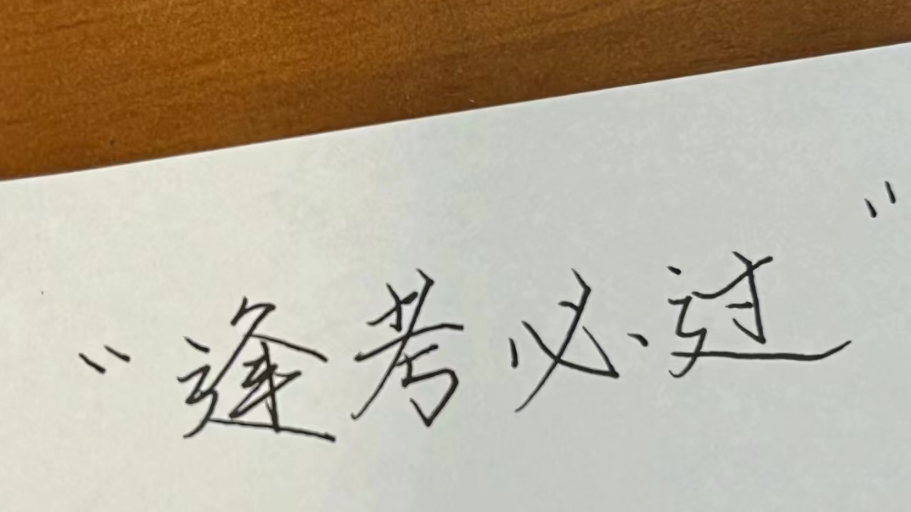 “逢考必过”